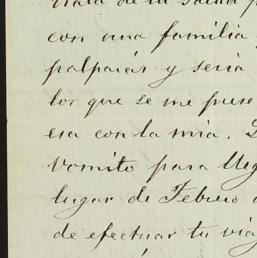 trata de tu salud p
con una familia
palpaiás y seria
los que se me prese
esa con la mia. D
vomito para lleg
lugar de Febrero
de efectuar tu via